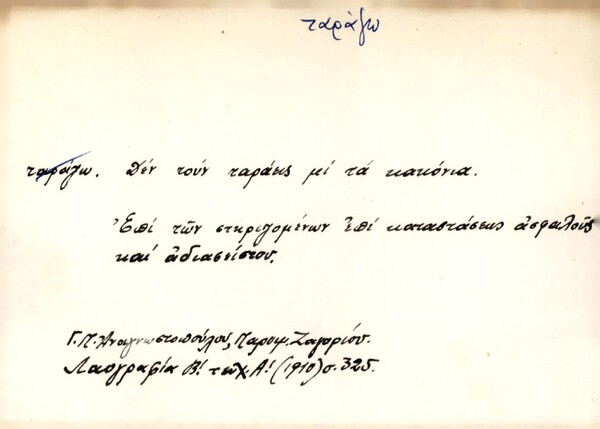 ταράζω
ταράζω. Δέν τούν ταράεις μί τά κακόνια.
Ἐπί τῶν στηριζομένων ἐπί καταστάσεως ἀσφαλοῦς
καί ἀδιασείστου.
Γ. Π. Ἀναγνωστοπούλου, Παροιμ. Ζαγορίου.
Λαογραφία Β! τεῦχ. Α! (1910) σ. 325.